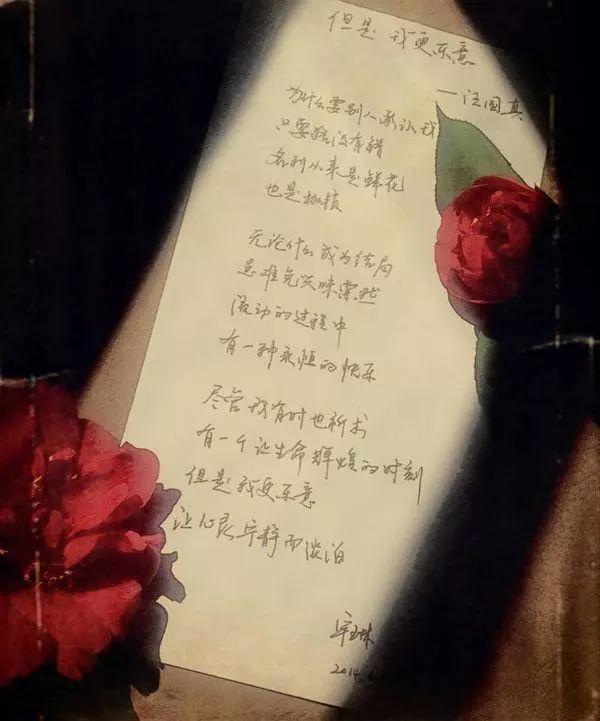 但是 我更乐意
—汪国真
为什么要别人承认我
只要路没有错
名利从来是鲜花
也是枷锁
无论什么成为结局
总难免兴味索然
流动的过程中
有一种永恒的快乐
尽管我有时也祈求
有一个让生命辉煌的时刻
但是我更乐意
让心灵宁静而淡泊
2014.